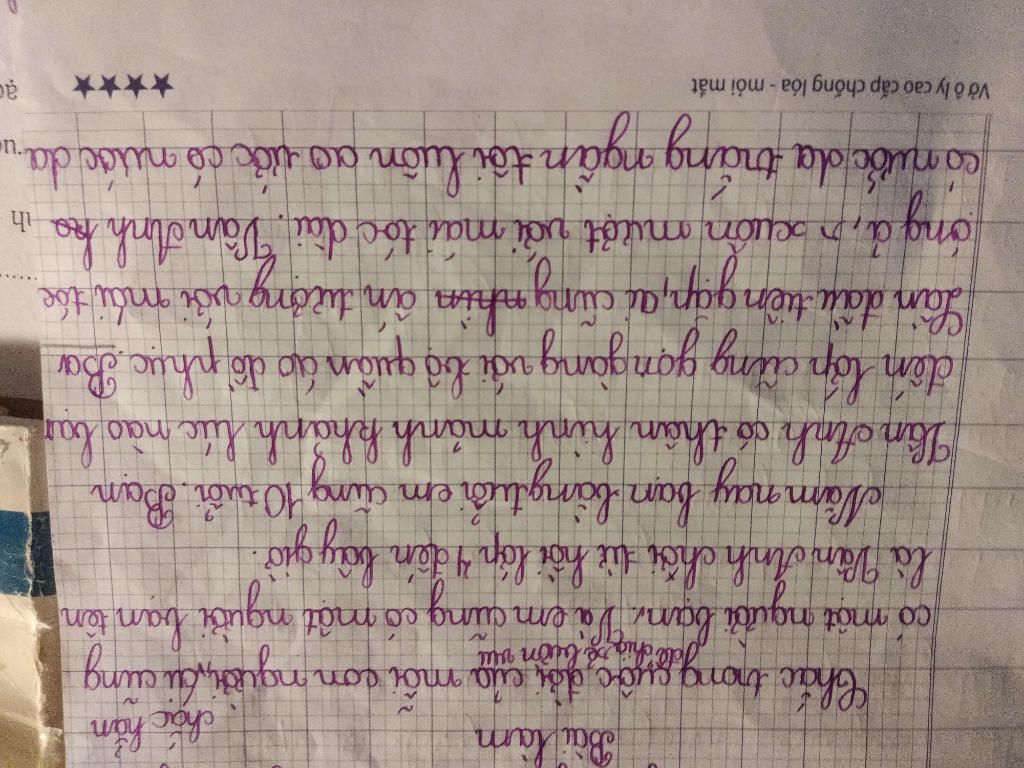 Bài làm
chắc hẳn
Chắc trong cuộc đời của mỗi con người, ai cũng
để chia sẻ buồn vui
có một người bạn. Và em cũng có một người bạn tên
là Vân Anh chơi từ hồi lớp 4 đến bây giờ.
Năm nay bạn bằng tuổi em cũng 10 tuổi. Bạn
Vân Anh có thân hình mảnh khảnh lúc nào bạn
đến lớp cũng gọn gàng với bộ quần áo đồ phục. Ba
Lần đầu tiên gặp, ai cũng nhìn ấn tượng với mái tóc
óng ả, suôn mượt với mái tóc dài. Vân Anh
có nước da trắng ngần tôi luôn ao ước có nước da
Vở ô ly cao cấp chống lóa - mỏi mắt ★★★★